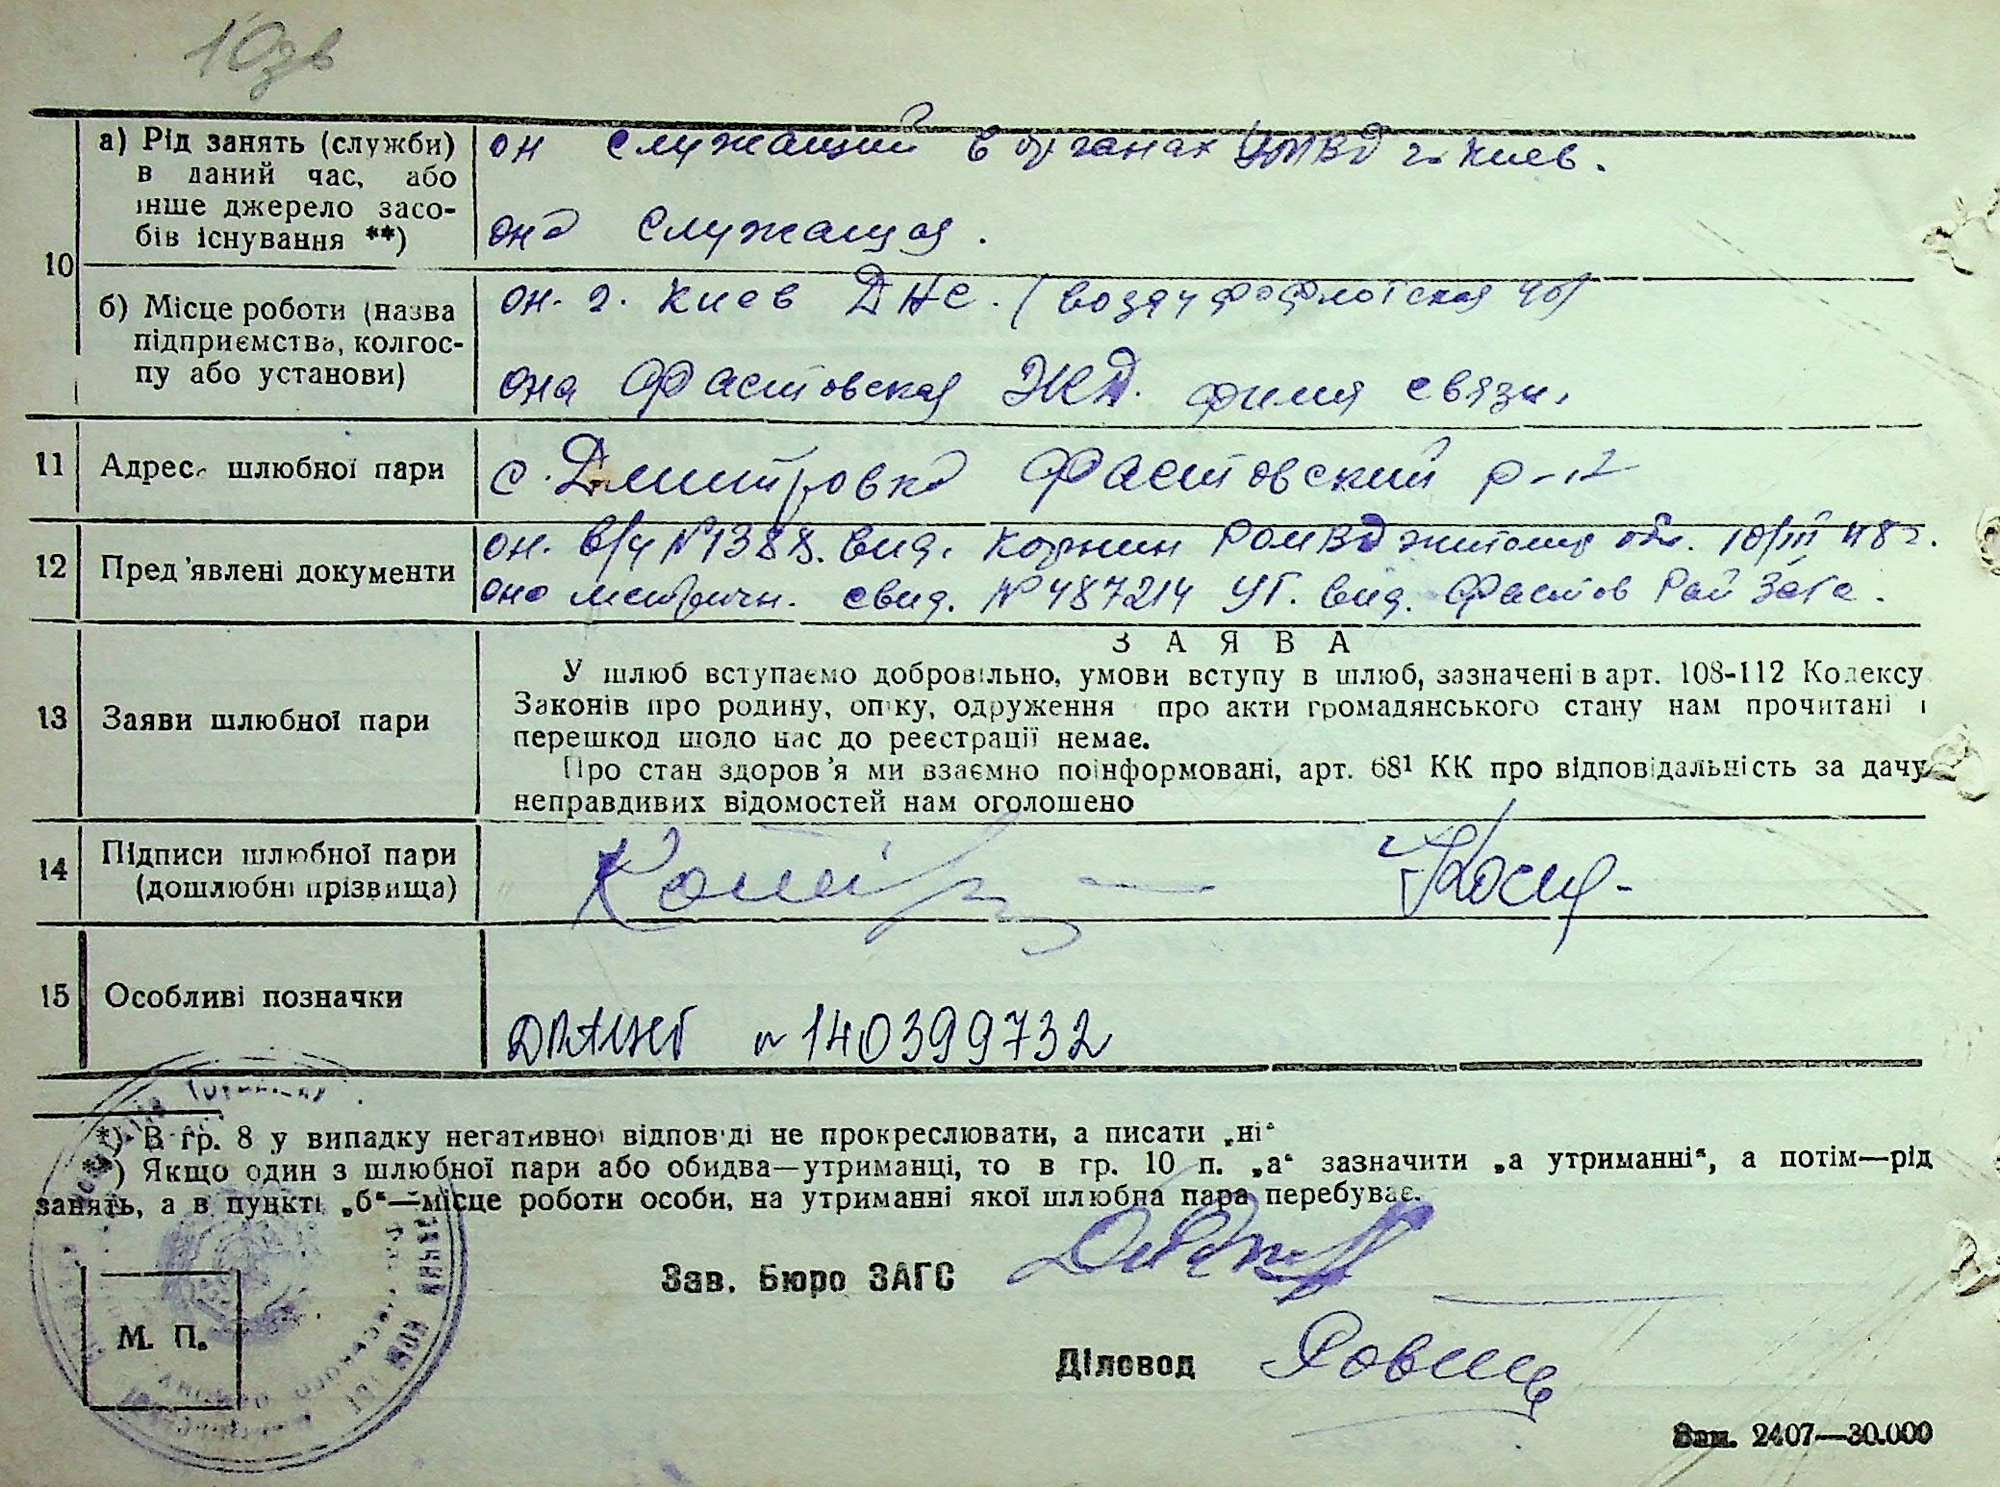 10зв
10
а) Рід занять (служби)
в даний час, або
інше джерело засо-
бів існування **)
он служащий в органах УМВД г. Киев.
она служащая.
б) Місце роботи (назва
підприємства, колгос-
пу або установи)
он. г. Киев ДНС. (воздухофлотская
она Фастовская ЖД. связи.
11
Адреса шлюбної пари
с. Дмитровка Фастовский р-н
12
Пред'явлені документи
он. в/ч №1388. вид. Корнин РОМВД житомир обл. 10/III 48 г.
она метричн. свид. №487214 УГ. вид. Фастов Рай Загс.
13
Заяви шлюбної пари
ЗАЯВА
У шлюб вступаємо добровільно, умови вступу в шлюб, зазначені в арт. 108-112 Кодексу
Законів про родину, опіку, одруження і про акти громадянського стану нам прочитані і
перешкод щодо нас до реєстрації немає.
Про стан здоров'я ми взаємно поінформовані, арт. 68¹ КК про відповідальність за дачу
неправдивих відомостей нам оголошено
14
Підписи шлюбної пари
(дошлюбні прізвища)
15
Особливі позначки
ДРАЦСГ № 140399732
*) В гр. 8 у випадку негативної відповіді не прокреслювати, а писати „ні“
**) Якщо один з шлюбної пари або обидва—утриманці, то в гр. 10 п. „а“ зазначити „а утриманні“, а потім—рід
занять, а в пункті „б“—місце роботи особи, на утриманні якої шлюбна пара перебуває.
Зав. Бюро ЗАГС
М. П.
Діловод
Зам. 2407—30.000